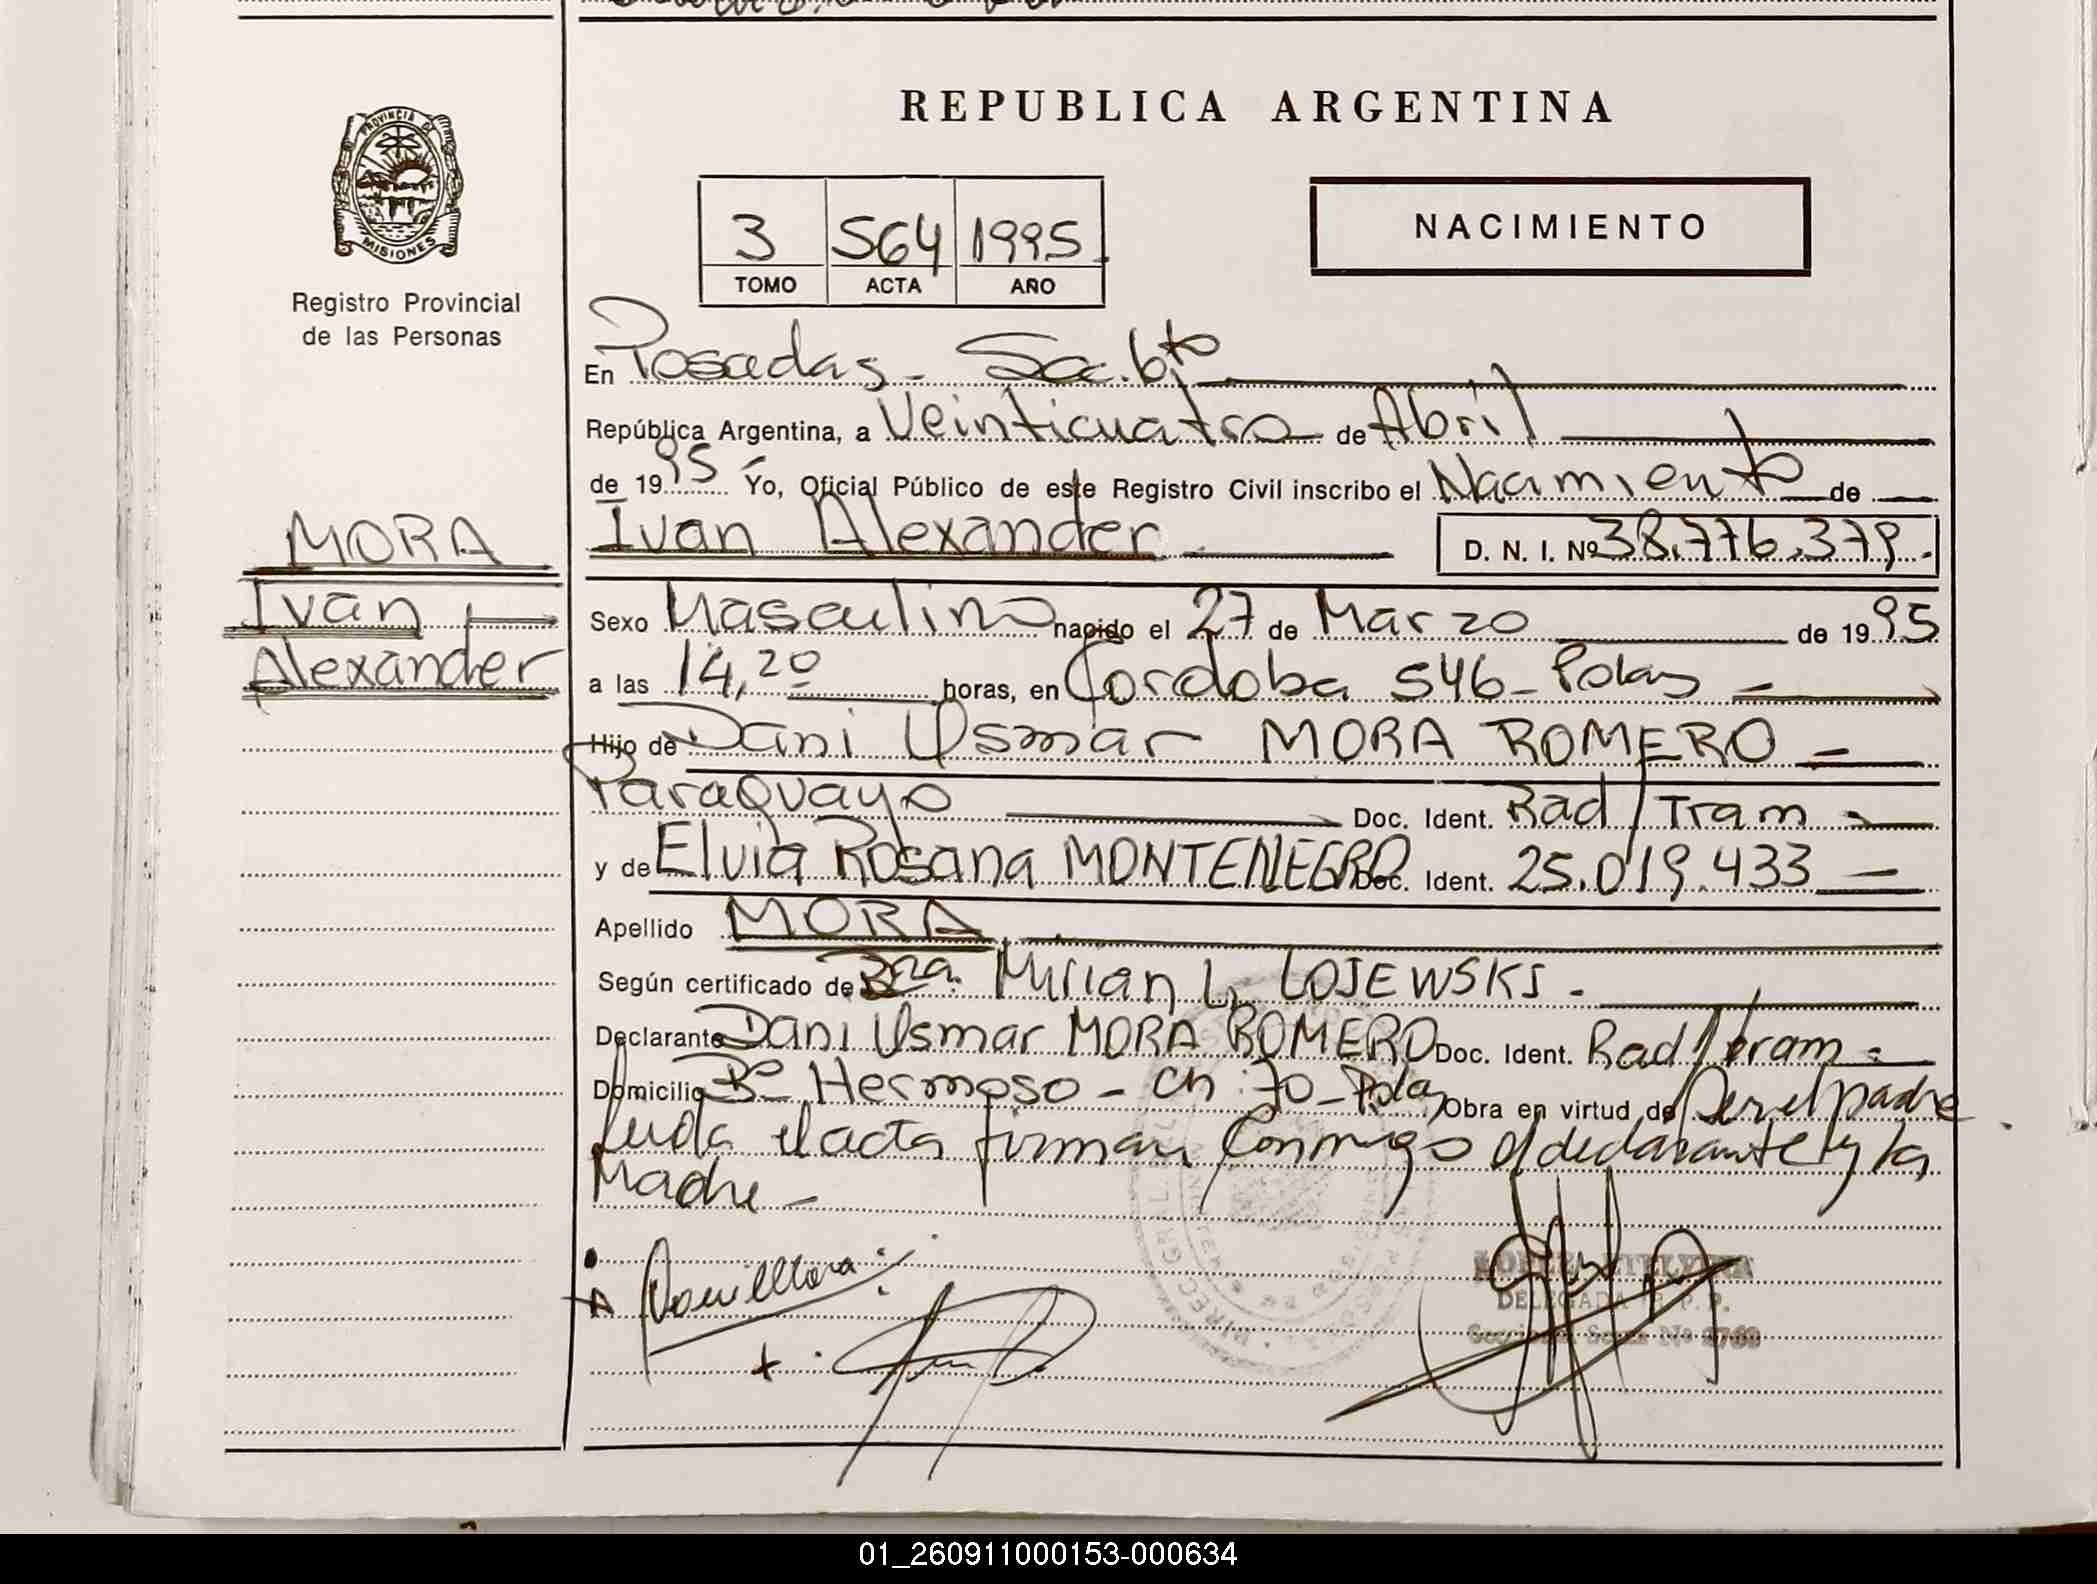 REPUBLICA ARGENTINA
PROVINCIA DE
MISIONES
Registro Provincial
de las Personas
3 564 1995
TOMO ACTA AÑO
NACIMIENTO
En Posadas - Sec. 6to
República Argentina, a Veinticuatro de Abril
de 1995 Yo, Oficial Público de este Registro Civil inscribo el Nacimiento de
MORA
Ivan
Alexander
Ivan Alexander D. N. I. Nº 38.776.379.
Sexo Masculino nacido el 27 de Marzo de 1995
a las 14,20 horas, en Cordoba 546 - Pdas
Hijo de Dani Usmar MORA ROMERO
Paraguayo Doc. Ident. Rad/Tram
y de Elvia Rosana MONTENEGRO Doc. Ident. 25.019.433
Apellido MORA
Según certificado de Mirian L. LOJEWSKI.
Declarante Dani Usmar MORA ROMERO Doc. Ident. Rad/Tram
Domicilio Bº Hermoso - Ch 70 - Pdas Obra en virtud de Ser el padre
Leida el acta firman Conmigo el declarante y la
Madre -
DELEGADA R. P. P.
01_260911000153-000634